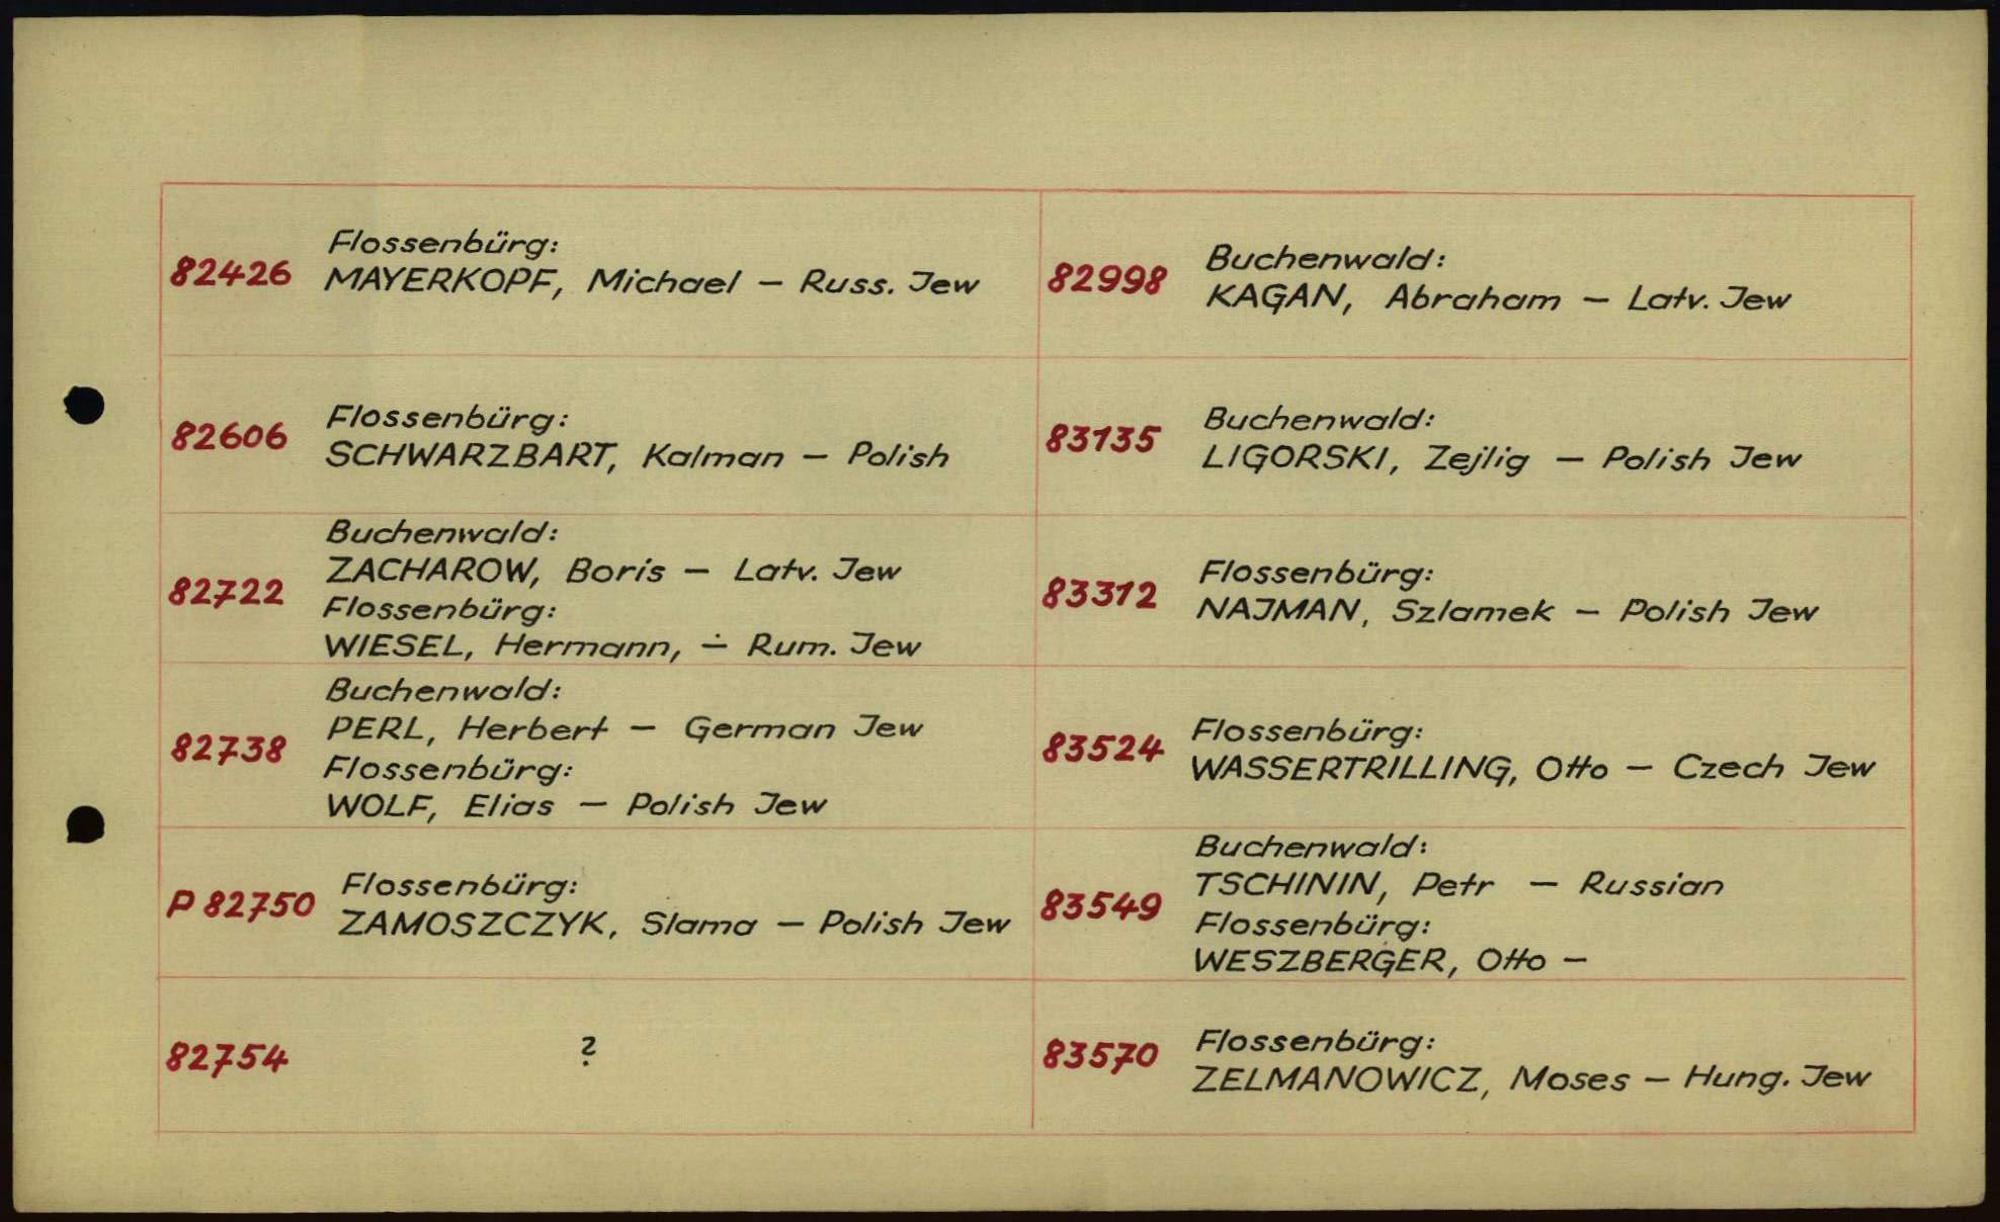 82426 Flossenbürg:
MAYERKOPF, Michael — Russ. Jew
82606 Flossenbürg:
SCHWARZBART, Kalman — Polish
82722 Buchenwald:
ZACHAROW, Boris — Latv. Jew
Flossenbürg:
WIESEL, Hermann, — Rum. Jew
82738 Buchenwald:
PERL, Herbert — German Jew
Flossenbürg:
WOLF, Elias — Polish Jew
P 82750 Flossenbürg:
ZAMOSZCZYK, Slama — Polish Jew
82754 ?
82998 Buchenwald:
KAGAN, Abraham — Latv. Jew
83135 Buchenwald:
LIGORSKI, Zejlig — Polish Jew
83312 Flossenbürg:
NAJMAN, Szlamek — Polish Jew
83524 Flossenbürg:
WASSERTRILLING, Otto — Czech Jew
83549 Buchenwald:
TSCHININ, Petr — Russian
Flossenbürg:
WESZBERGER, Otto —
83570 Flossenbürg:
ZELMANOWICZ, Moses — Hung. Jew